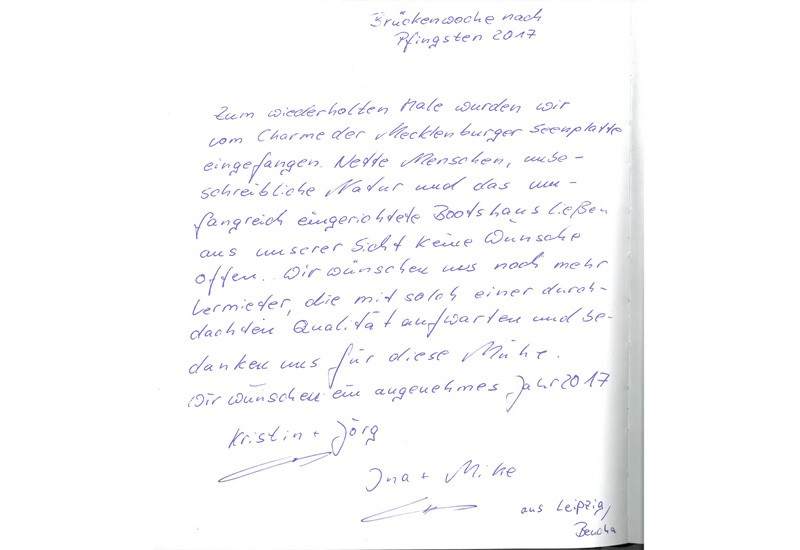 Brückenwoche nach
Pfingsten 2017
Zum wiederholten Male wurden wir
vom Charme der Mecklenburger Seenplatte
eingefangen. Nette Menschen, unbe-
schreibliche Natur und das um-
fangreich eingerichtete Bootshaus ließen
aus unserer Sicht keine Wünsche
offen. Wir wünschen uns noch mehr
Vermieter, die mit solch einer durch-
dachten Qualität aufwarten und be-
danken uns für diese Mühe.
Wir wünschen ein angenehmes Jahr 2017
Kristin + Jörg
Ina + Mike
aus Leipzig,